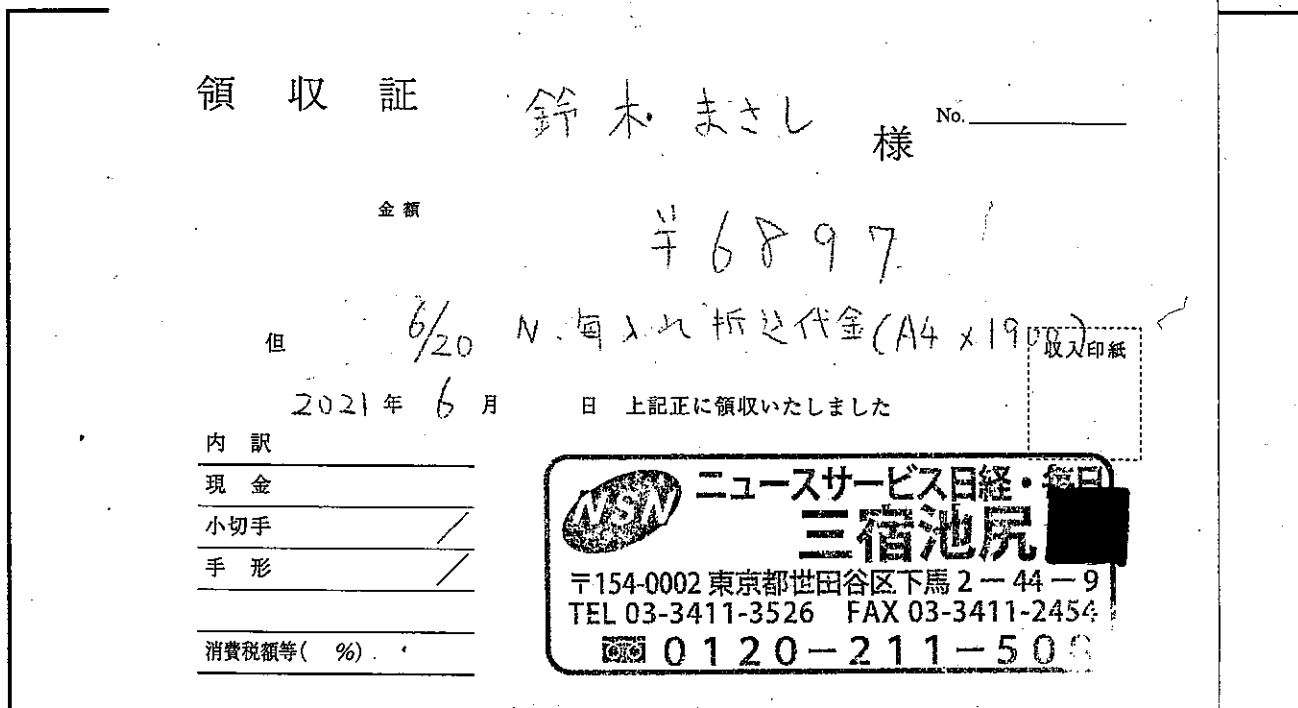 領 収 証 鈴木 まさし 様 No.
金額 ¥6897
但 6/20 N、毎入れ折込代金(A4 x 1900)
収入印紙
2021年 6月 日 上記正に領収いたしました
内 訳
現 金
小切手
手 形
消費税額等( %)
NSN ニュースサービス日経・毎日
三宿池尻
〒154-0002 東京都世田谷区下馬2-44-9
TEL 03-3411-3526 FAX 03-3411-2454
0120-211-50